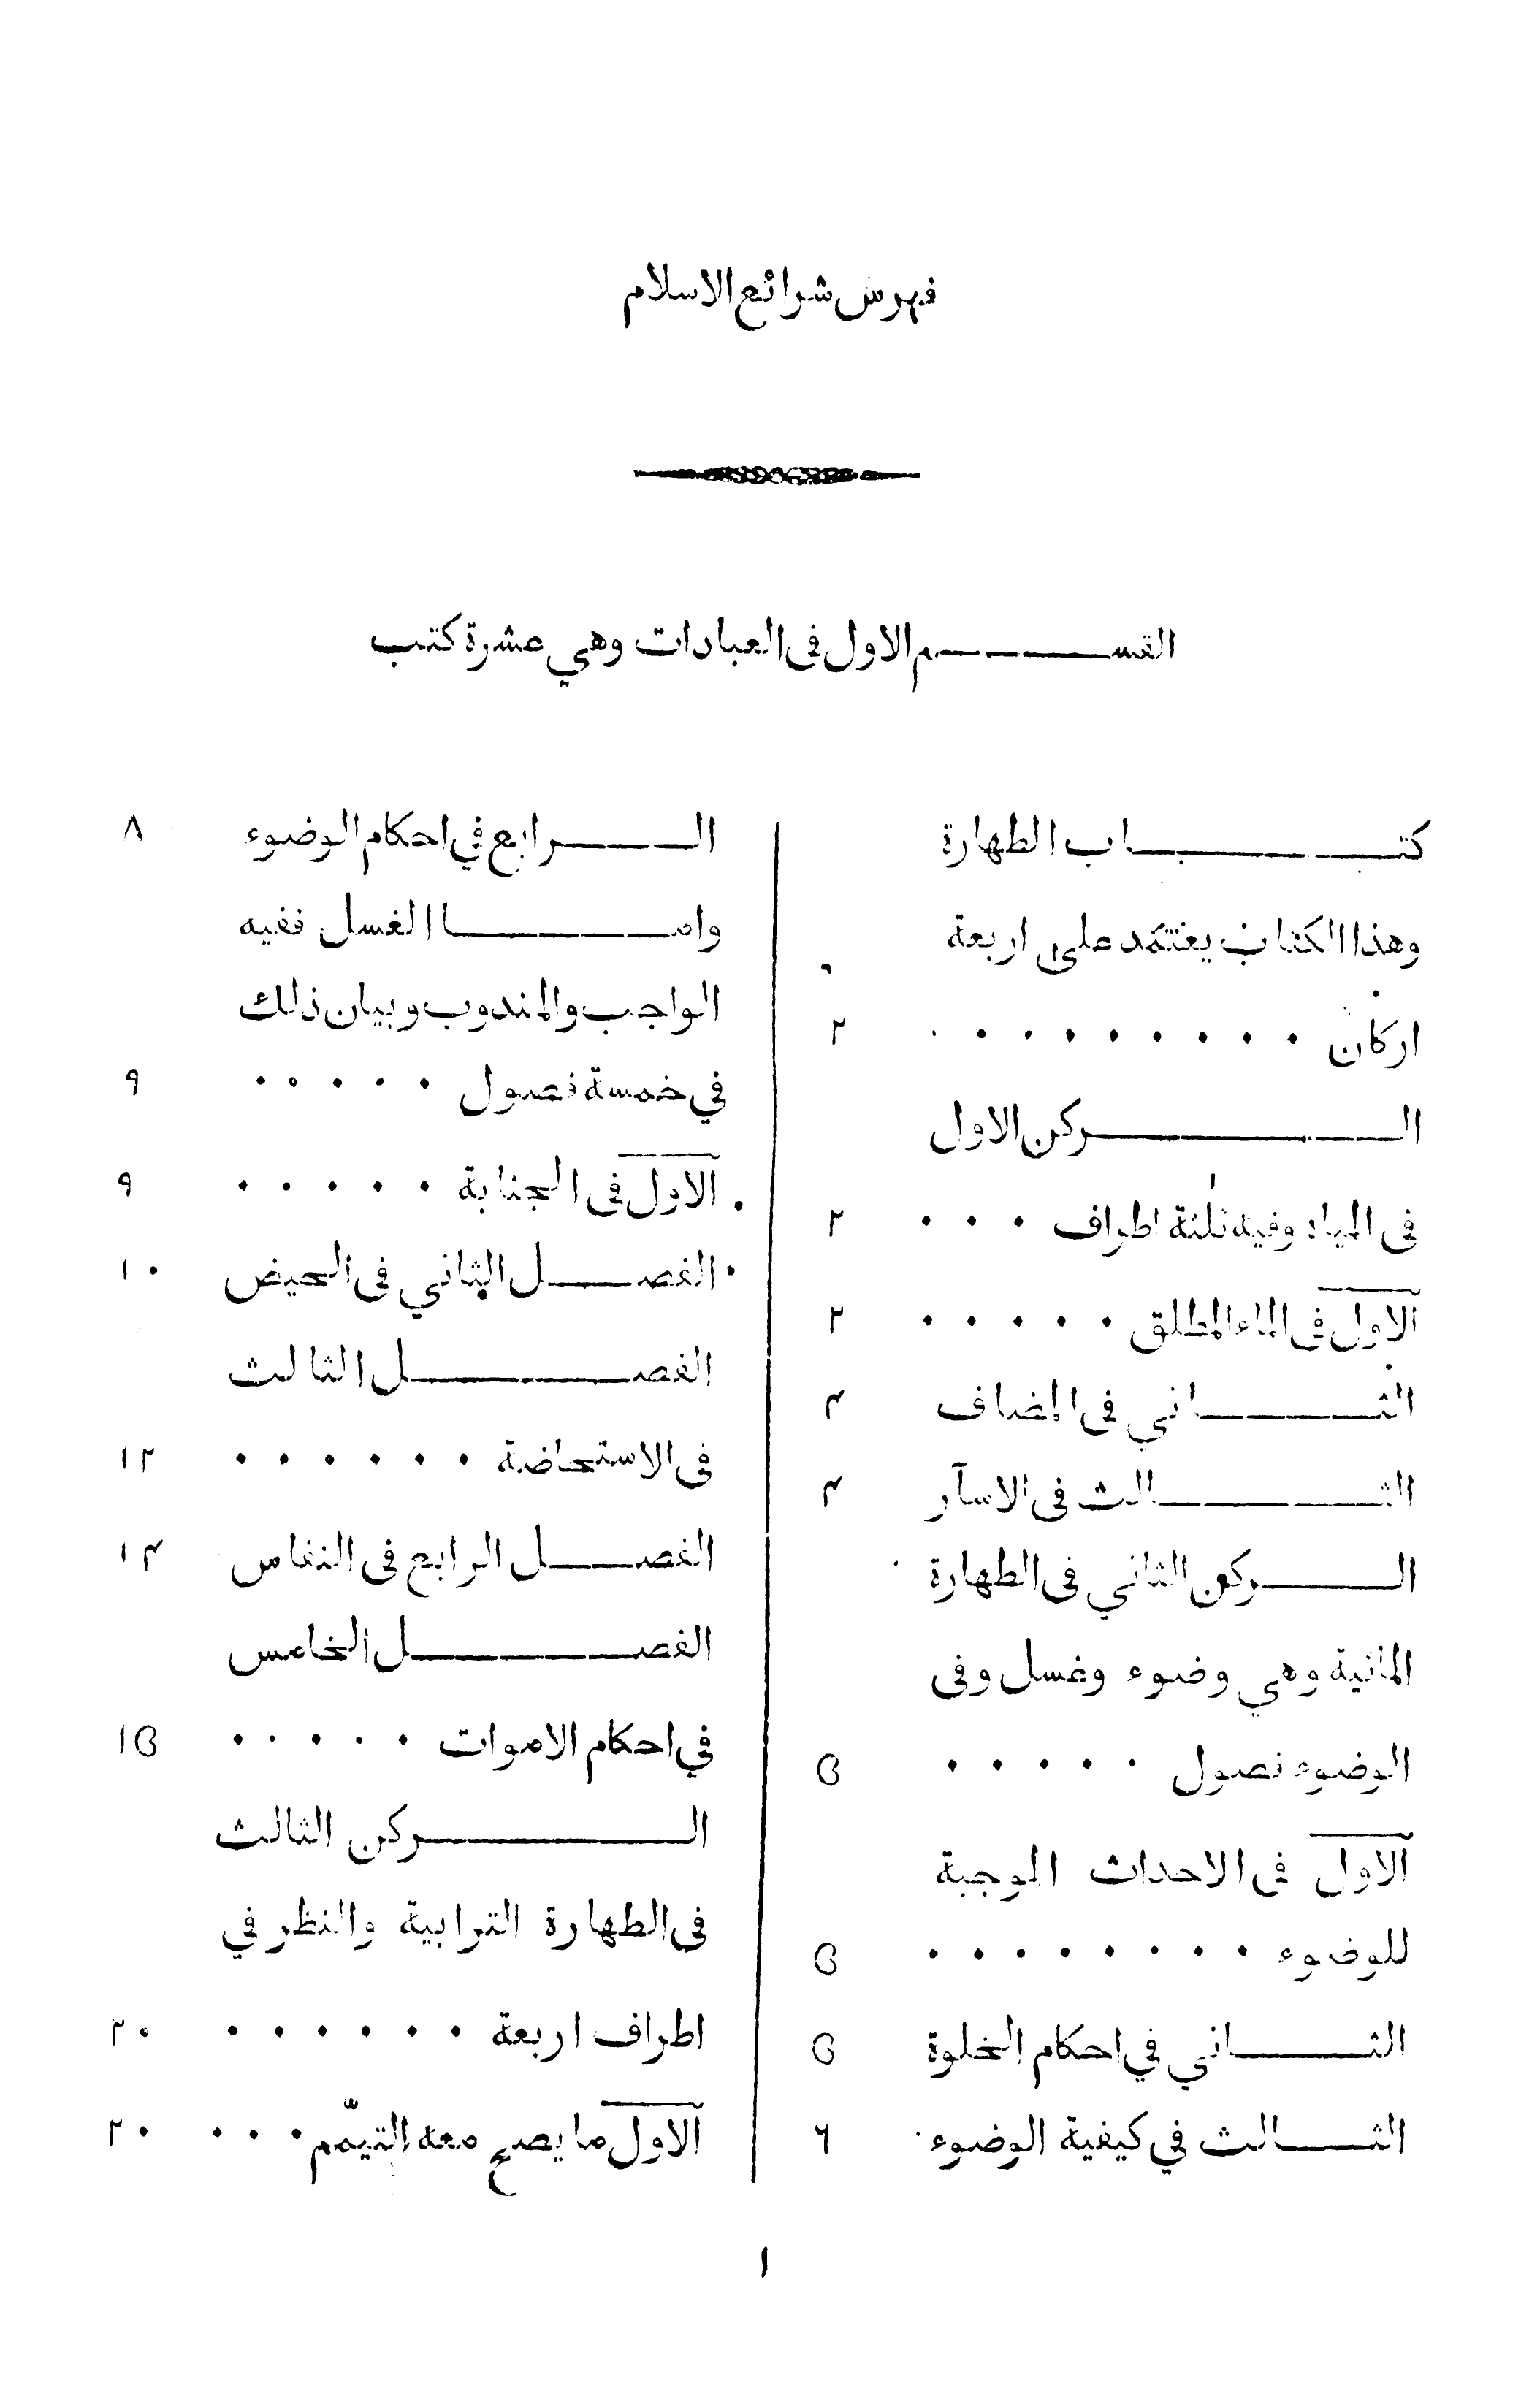 فهرس شرائع الاسلام
القسم الاول فى العبادات وهي عشرة كتب
كتاب الطهارة
وهذا الكتاب يعتمد على اربعة
اركان ٢
الركن الاول
فى المياه وفيه ثلثة اطراف ٢
الاول فى الماء المطلق ٢
الثاني فى المضاف ۴
الثالث فى الاسآر ۴
الركن الثاني فى الطهارة
المائية وهي وضوء وغسل وفى
الوضوء فصول ٥
الاول فى الاحداث الموجبة
للوضوء ٥
الثاني في احكام الخلوة ٥
الثالث في كيفية الوضوء ٦
الرابع في احكام الوضوء ٨
واما الغسل ففيه
الواجب والمندوب وبيان ذلك
في خمسة فصول ٩
الاول فى الجنابة ٩
الفصل الثاني فى الحيض ١٠
الفصل الثالث
فى الاستحاضة ١٢
الفصل الرابع فى النفاس ١۴
الفصل الخامس
في احكام الاموات ١٥
الركن الثالث
فى الطهارة الترابية والنظر في
اطراف اربعة ٢٠
الاول ما يصح معه التيمّم ٢٠
١